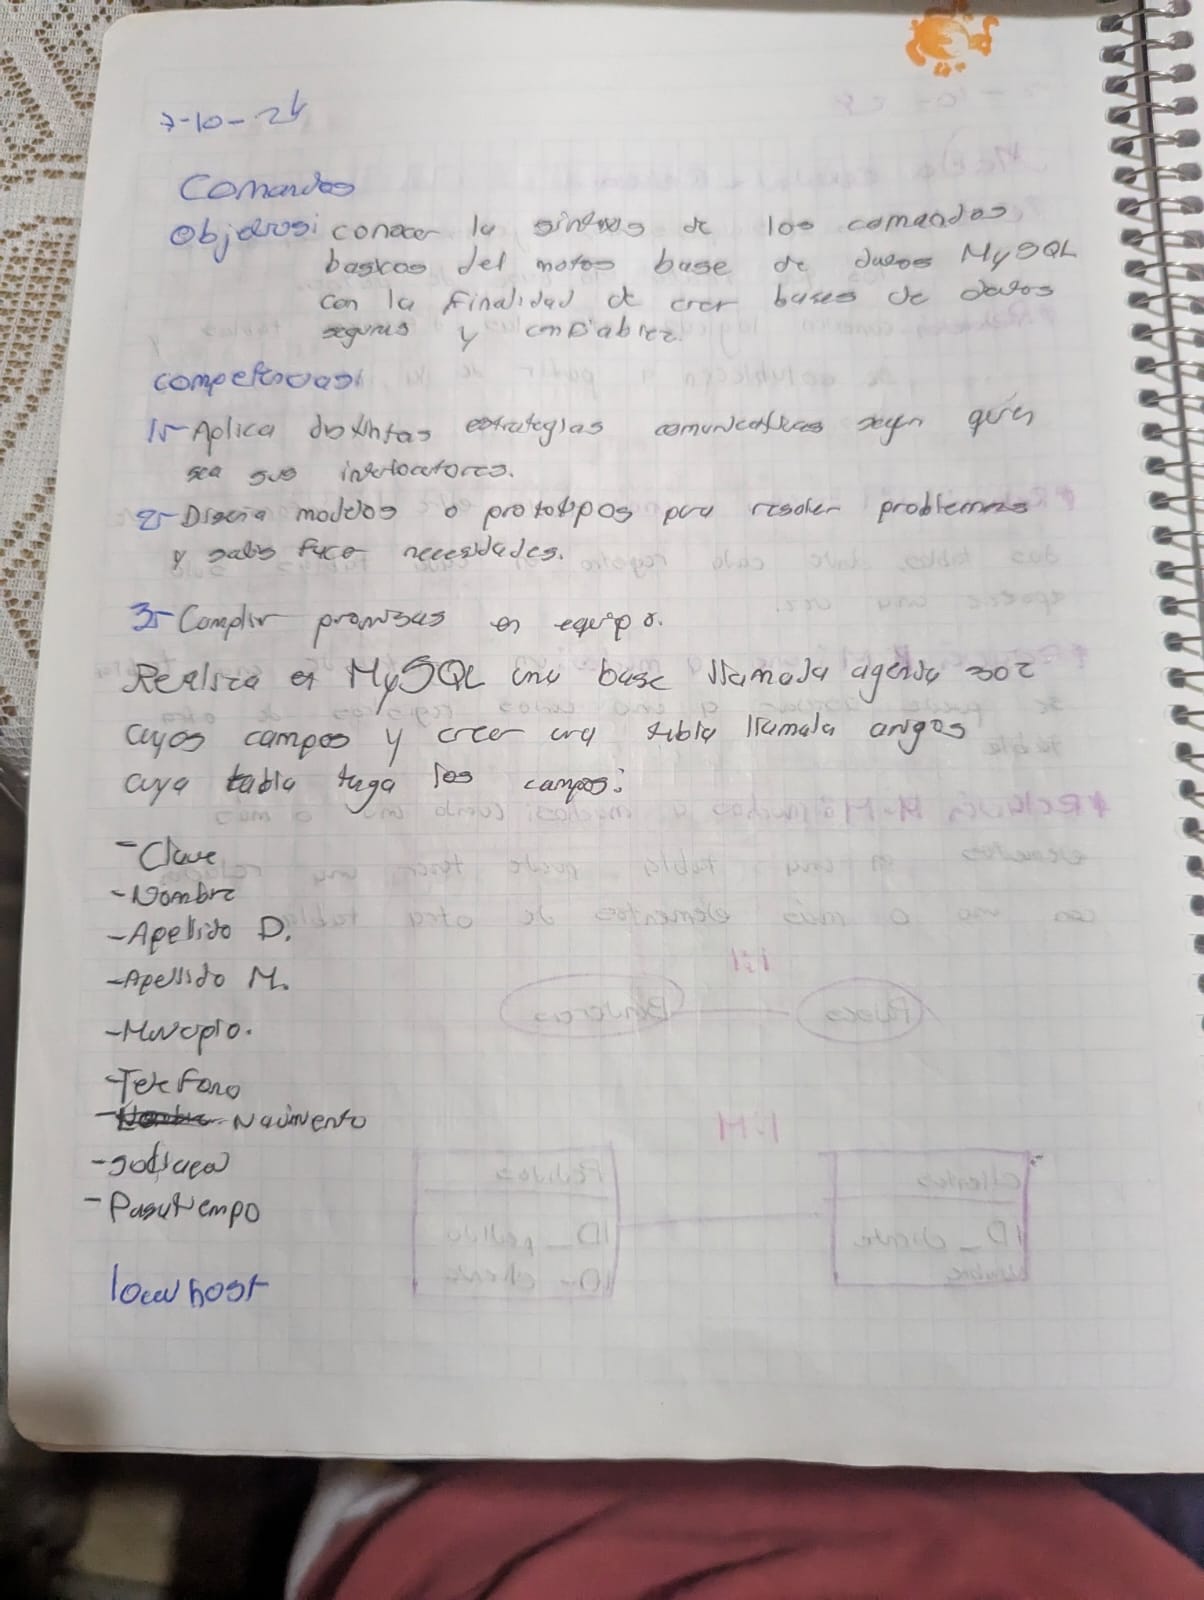 7-10-24
Comandos
Objetivos: conocer la sintaxis de los comandos
basicos del motos base de datos MySQL
con la finalidad de crer bases de datos
seguras y confiables.
competencias:
1- Aplica distintas estrategias comunicativas segun quien
sea sus interlocutores.
2- Diseña modelos o prototipos para resolver problemas
y satisface necesidades.
3- Complir promisas en equipo.
Realiza en MySQL una base llamada agenda 302
cuyos campos y creer una tabla llamada amigos
cuya tabla tenga los campos:
- Clave
- Nombre
- Apellido P.
- Apellido M.
- Municipio.
- Telefono
- Nacimiento
- Pasatiempo
localhost